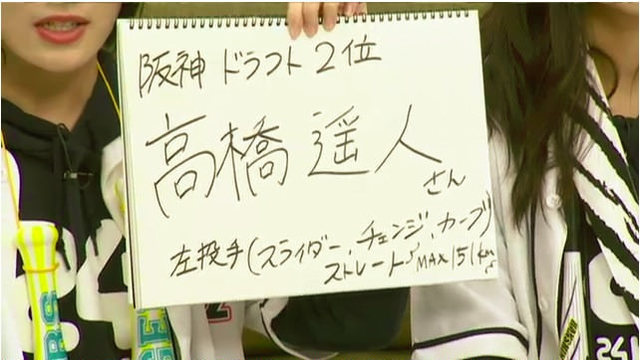 阪神 ドラフト2位
高橋遥人
さん
左投手(スライダー、チェンジ、カーブ)
ストレート MAX151km
24